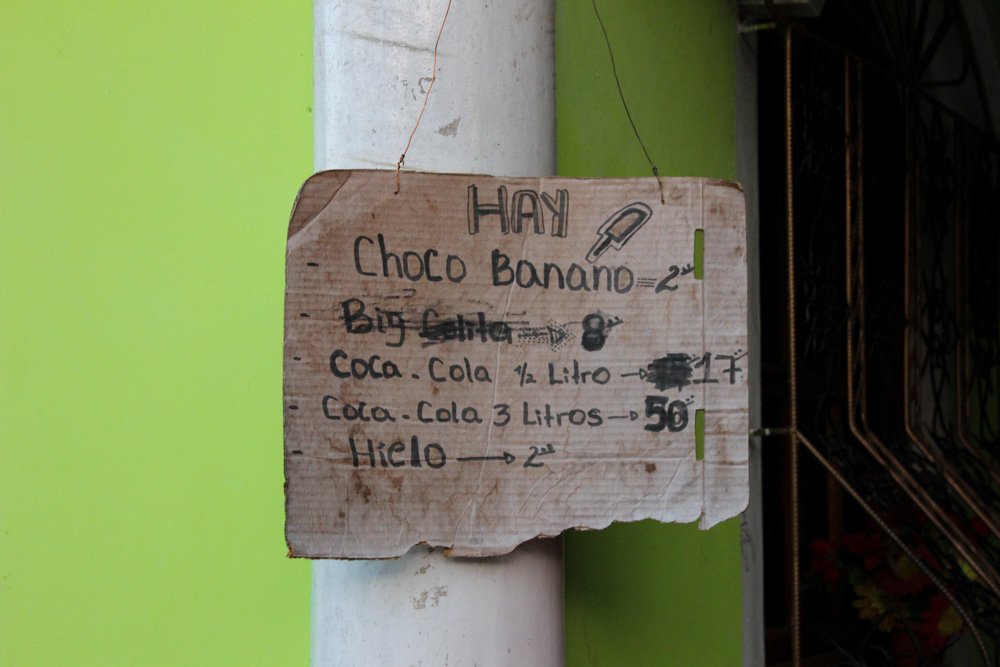 HAY
- Choco Banano = 2⁰⁰
- Big 8
- Coca - Cola 1/2 Litro → 17
- Coca - Cola 3 Litros → 50
- Hielo → 2⁰⁰